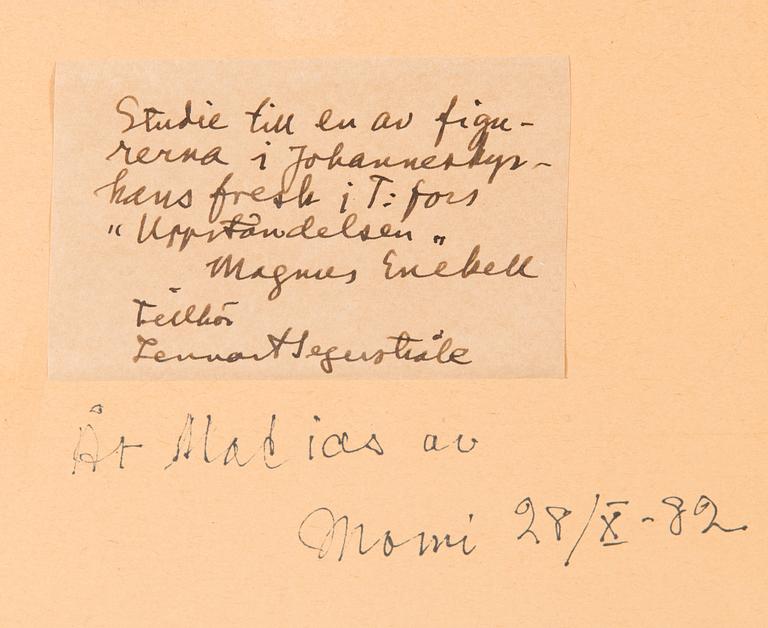 Studie till en av figu-
rerna i Johanneskyr-
kans fresk i T:fors
"Uppståndelsen"
Magnus Enckell
Tillhör
Lennart Segerstråle
Åt Matias av
Momi 28/X-82.